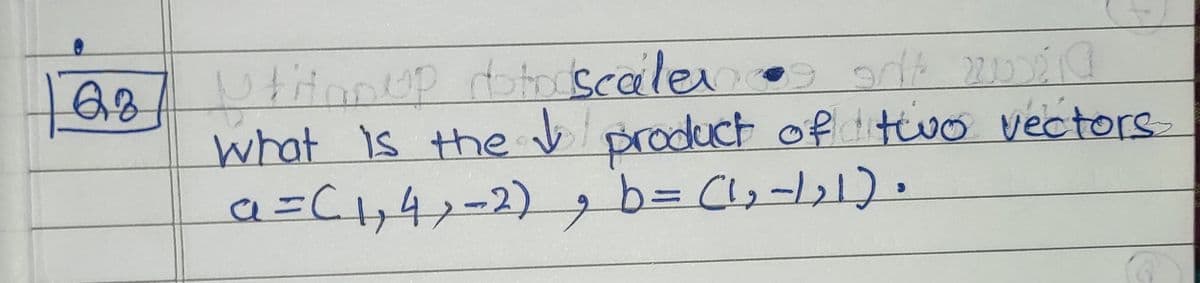 Q3
scaler
what is the ↓ product of two vectors
a = (1, 4, -2) , b = (1, -1, 1) .